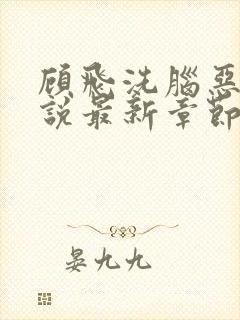 顾飛洗腦惡
說最新章節
晏九九